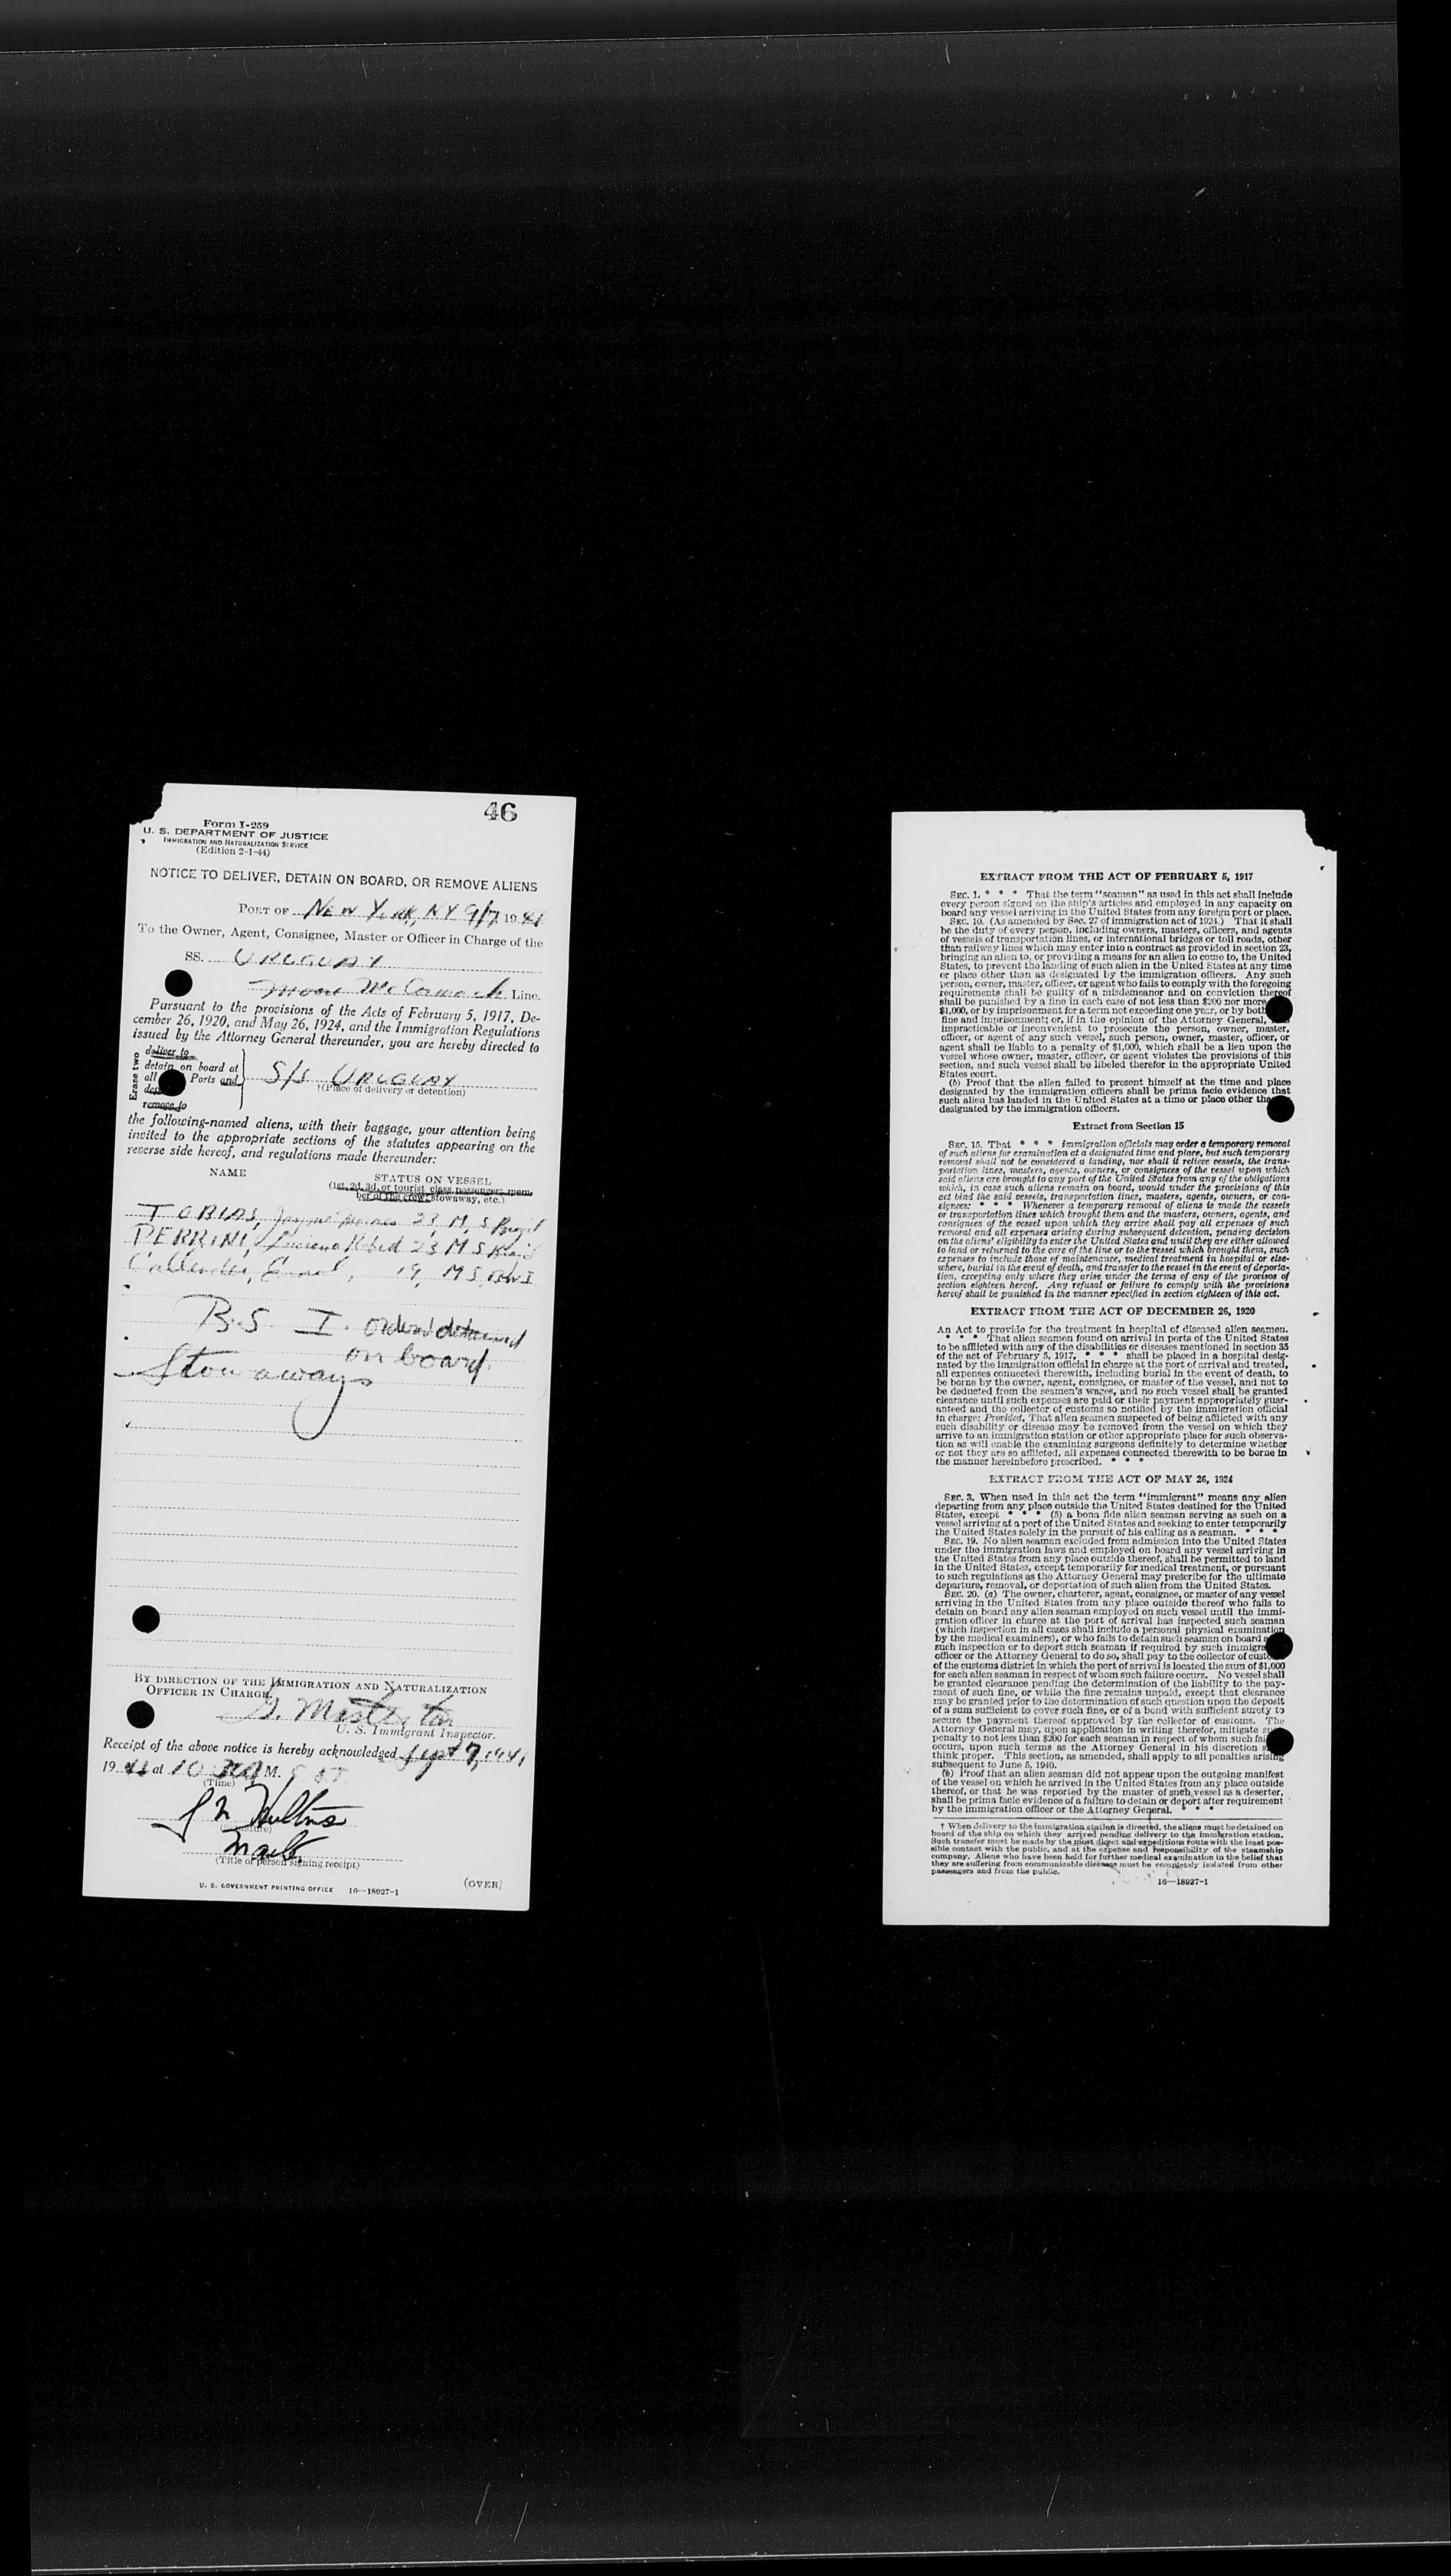 46
Form I-259
U. S. DEPARTMENT OF JUSTICE
IMMIGRATION AND NATURALIZATION SERVICE
(Edition 2-1-44)
NOTICE TO DELIVER, DETAIN ON BOARD, OR REMOVE ALIENS
PORT OF NEW YORK, NY 9/7 19
To the Owner, Agent, Consignee, Master or Officer in Charge of the
SS. URUGUAY
Moore McCormack Line.
Pursuant to the provisions of the Acts of February 5, 1917, De-
cember 26, 1920, and May 26, 1924, and the Immigration Regulations
issued by the Attorney General thereunder, you are hereby directed to
Erase two
deliver to
detain on board at
all Ports and
remove to
S/S URUGUAY
(Place of delivery or detention)
the following-named aliens, with their baggage, your attention being
invited to the appropriate sections of the statutes appearing on the
reverse side hereof, and regulations made thereunder:
NAME
STATUS ON VESSEL
(1st, 2d, 3d, or tourist class passenger; mem-
ber of the crew, stowaway, etc.)
TOBIAS, 23 M, S
PERRINI, Luciano 23 M S
Callender, 19, M S BWI
B.S. I. ordered detained
on board.
Stowaways
BY DIRECTION OF THE IMMIGRATION AND NATURALIZATION
OFFICER IN CHARGE.
U. S. Immigrant Inspector.
Receipt of the above notice is hereby acknowledged Sept 7,
19 at 10 M.
(Time)
(Signature)
(Title of person signing receipt)
U. S. GOVERNMENT PRINTING OFFICE 16—18927-1
(OVER)
EXTRACT FROM THE ACT OF FEBRUARY 5, 1917
SEC. 1. * * * That the term "seaman" as used in this act shall include
every person signed on the ship's articles and employed in any capacity on
board any vessel arriving in the United States from any foreign port or place.
SEC. 10. (As amended by Sec. 27 of immigration act of 1924.) That it shall
be the duty of every person, including owners, masters, officers, and agents
of vessels of transportation lines, or international bridges or toll roads, other
than railway lines which may enter into a contract as provided in section 23,
bringing an alien to, or providing a means for an alien to come to, the United
States, to prevent the landing of such alien in the United States at any time
or place other than as designated by the immigration officers. Any such
person, owner, master, officer, or agent who fails to comply with the foregoing
requirements shall be guilty of a misdemeanor and on conviction thereof
shall be punished by a fine in each case of not less than $200 nor more
$1,000, or by imprisonment for a term not exceeding one year, or by both
fine and imprisonment; or, if in the opinion of the Attorney General,
impracticable or inconvenient to prosecute the person, owner, master,
officer, or agent of any such vessel, such person, owner, master, officer, or
agent shall be liable to a penalty of $1,000, which shall be a lien upon the
vessel whose owner, master, officer, or agent violates the provisions of this
section, and such vessel shall be libeled therefor in the appropriate United
States court.
(b) Proof that the alien failed to present himself at the time and place
designated by the immigration officers shall be prima facie evidence that
such alien has landed in the United States at a time or place other than
designated by the immigration officers.
Extract from Section 15
SEC. 15. That * * * immigration officials may order a temporary removal
of such aliens for examination at a designated time and place, but such temporary
removal shall not be considered a landing, nor shall it relieve vessels, the trans-
portation lines, masters, agents, owners, or consignees of the vessel upon which
said aliens are brought to any port of the United States from any of the obligations
which, in case such aliens remain on board, would under the provisions of this
act bind the said vessels, transportation lines, masters, agents, owners, or con-
signees: * * * Whenever a temporary removal of aliens is made the vessels
or transportation lines which brought them and the masters, owners, agents, and
consignees of the vessel upon which they arrive shall pay all expenses of such
removal and all expenses arising during subsequent detention, pending decision
on the aliens' eligibility to enter the United States and until they are either allowed
to land or returned to the care of the line or to the vessel which brought them, such
expenses to include those of maintenance, medical treatment in hospital or else-
where, burial in the event of death, and transfer to the vessel in the event of deporta-
tion, excepting only where they arise under the terms of any of the provisos of
section eighteen hereof. Any refusal or failure to comply with the provisions
hereof shall be punished in the manner specified in section eighteen of this act.
EXTRACT FROM THE ACT OF DECEMBER 26, 1920
An Act to provide for the treatment in hospital of diseased alien seamen.
* * * That alien seamen found on arrival in ports of the United States
to be afflicted with any of the disabilities or diseases mentioned in section 35
of the act of February 5, 1917, * * * shall be placed in a hospital desig-
nated by the immigration official in charge at the port of arrival and treated,
all expenses connected therewith, including burial in the event of death, to
be borne by the owner, agent, consignee, or master of the vessel, and not to
be deducted from the seamen's wages, and no such vessel shall be granted
clearance until such expenses are paid or their payment appropriately guar-
anteed and the collector of customs so notified by the immigration official
in charge: Provided, That alien seamen suspected of being afflicted with any
such disability or disease may be removed from the vessel on which they
arrive to an immigration station or other appropriate place for such observa-
tion as will enable the examining surgeons definitely to determine whether
or not they are so afflicted, all expenses connected therewith to be borne in
the manner hereinbefore prescribed. * * *
EXTRACT FROM THE ACT OF MAY 26, 1924
SEC. 3. When used in this act the term "immigrant" means any alien
departing from any place outside the United States destined for the United
States, except * * * (5) a bona fide alien seaman serving as such on a
vessel arriving at a port of the United States and seeking to enter temporarily
the United States solely in the pursuit of his calling as a seaman. * * *
SEC. 19. No alien seaman excluded from admission into the United States
under the immigration laws and employed on board any vessel arriving in
the United States from any place outside thereof, shall be permitted to land
in the United States, except temporarily for medical treatment, or pursuant
to such regulations as the Attorney General may prescribe for the ultimate
departure, removal, or deportation of such alien from the United States.
SEC. 20. (a) The owner, charterer, agent, consignee, or master of any vessel
arriving in the United States from any place outside thereof who fails to
detain on board any alien seaman employed on such vessel until the immi-
gration officer in charge at the port of arrival has inspected such seaman
(which inspection in all cases shall include a personal physical examination
by the medical examiners), or who fails to detain such seaman on board
such inspection or to deport such seaman if required by such immigra
officer or the Attorney General to do so, shall pay to the collector of custo
of the customs district in which the port of arrival is located the sum of $1,000
for each alien seaman in respect of whom such failure occurs. No vessel shall
be granted clearance pending the determination of the liability to the pay-
ment of such fine, or while the fine remains unpaid, except that clearance
may be granted prior to the determination of such question upon the deposit
of a sum sufficient to cover such fine, or of a bond with sufficient surety to
secure the payment thereof approved by the collector of customs. The
Attorney General may, upon application in writing therefor, mitigate
penalty to not less than $200 for each seaman in respect of whom such fai
occurs, upon such terms as the Attorney General in his discretion
think proper. This section, as amended, shall apply to all penalties arising
subsequent to June 5, 1940.
(b) Proof that an alien seaman did not appear upon the outgoing manifest
of the vessel on which he arrived in the United States from any place outside
thereof, or that he was reported by the master of such vessel as a deserter,
shall be prima facie evidence of a failure to detain or deport after requirement
by the immigration officer or the Attorney General. * * *
† When delivery to the immigration station is directed, the aliens must be detained on
board of the ship on which they arrived pending delivery to the immigration station.
Such transfer must be made by the most direct and expeditious route with the least pos-
sible contact with the public, and at the expense and responsibility of the steamship
company. Aliens who have been held for further medical examination in the belief that
they are suffering from communicable disease must be completely isolated from other
passengers and from the public.
16—18927-1